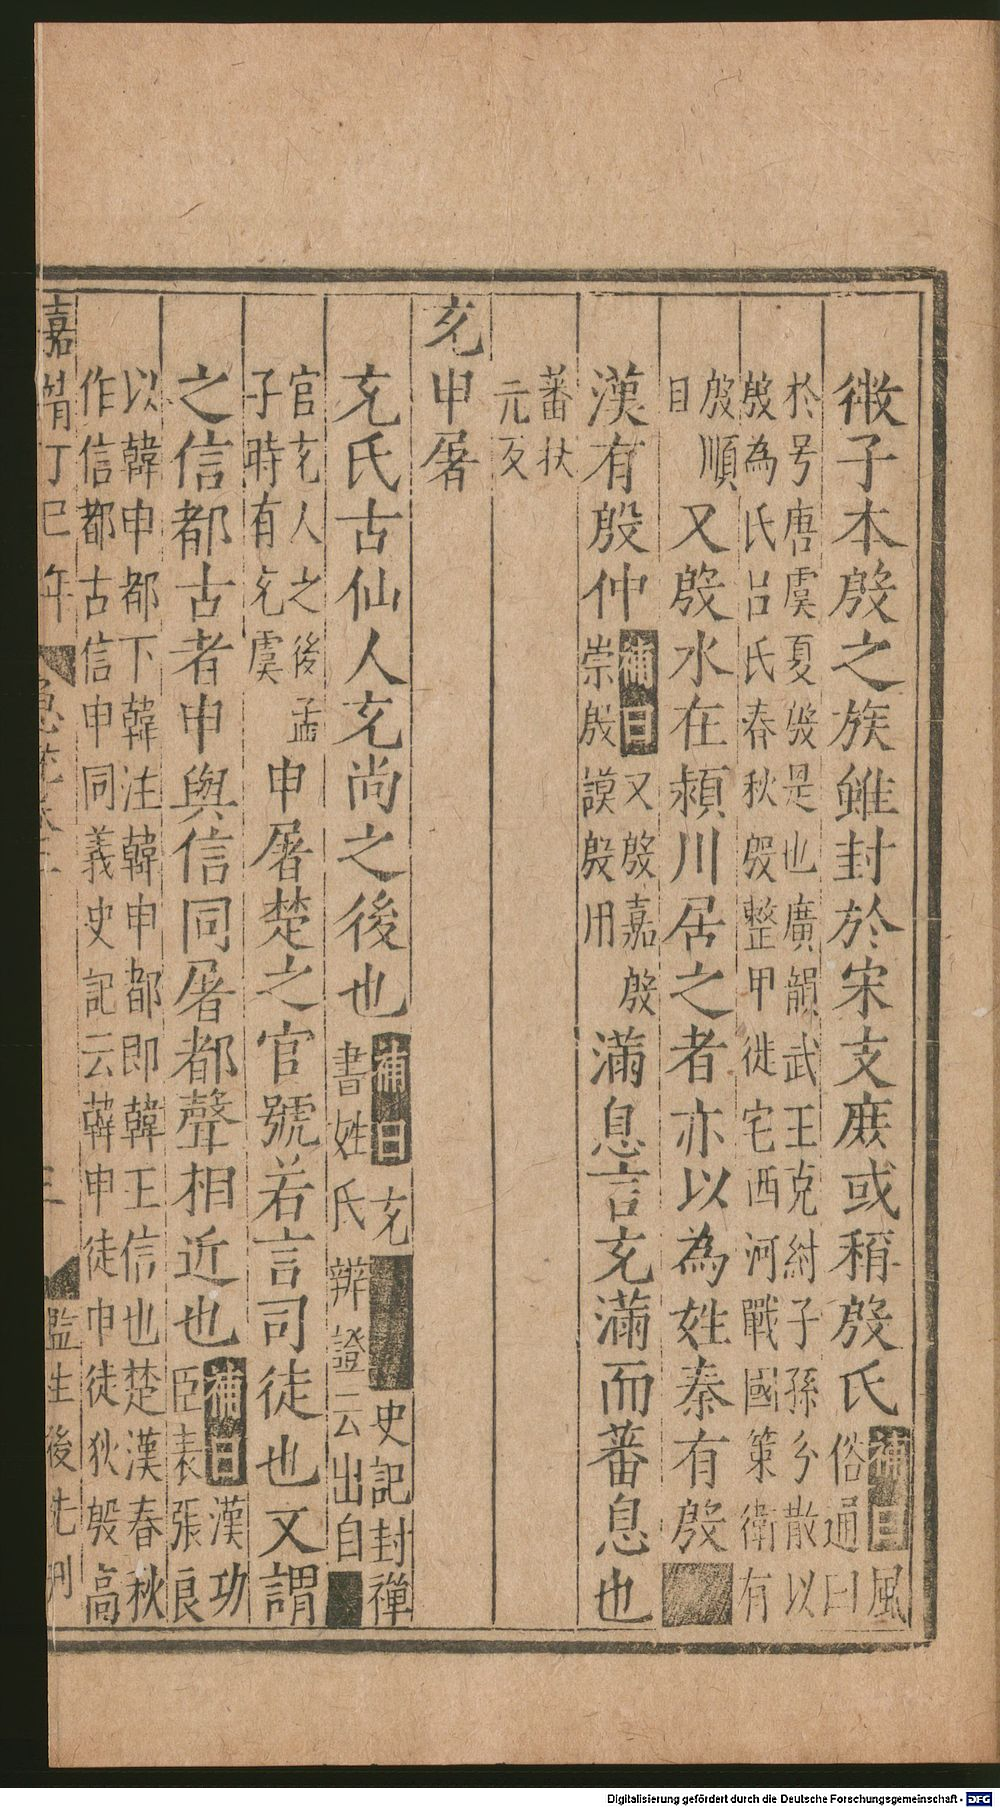 微子本殷之族雖封於宋支庶或稱殷氏補曰風俗通曰
於号唐虞夏殷是也廣韻武王克紂子孫分散以
殷為氏呂氏春秋殷整甲徙宅西河戰國策衛有
殷順且又殷水在潁川居之者亦以為姓秦有殷
漢有殷仲補曰又殷嘉殷崇殷謨殷用滿息言充滿而蕃息也
蕃扶
元反
充申屠
充氏古仙人充尚之後也補曰充 史記封禪書姓氏辯證云出自
官充人之後孟子時有充虞申屠楚之官號若言司徒也又謂
之信都古者申與信同屠都聲相近也補曰漢功臣表張良
以韓申都下韓注韓申都即韓王信也楚漢春秋
作信都古信申同義史記云韓申徒申徒狄殷高
嘉靖丁巳年 急就卷 監生後先刊
Digitalisierung gefördert durch die Deutsche Forschungsgemeinschaft - DFG